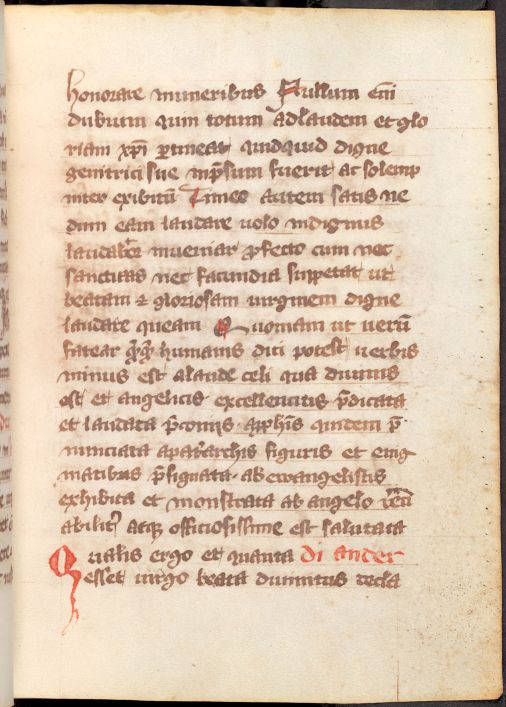 honorare muneribus Nullum em̄
dubium quin totum ad laudem et glo
riam xp̄i ꝑtineat quidquid digne
genitrici sue impensum fuerit ac solemp
niter exibitū Timeo autem satis ne
dum eam laudare uolo indignus
laudator inueniar ꝓfecto cum nec
sanctitas nec facundia suppetat ut
beatam ⁊ gloriosam uirginem digne
laudare queam Quoniam ut uerū
fatear humanis dici potest uerbis
minus est a laude celi qua diuinis
est et angelicis excellencius p̄dicata
et laudata p̄conijs a ꝓph̄is quidem p̄
nunciata a pat̓archis figuris et enig
matibus p̄figurata ab ewangelistis
exhibita et monstrata ab angelo
abilit̓ atqꝫ officiosissime est salutata
Qualis ergo et quanta di ander
esset uirgo beata diuinitus decla